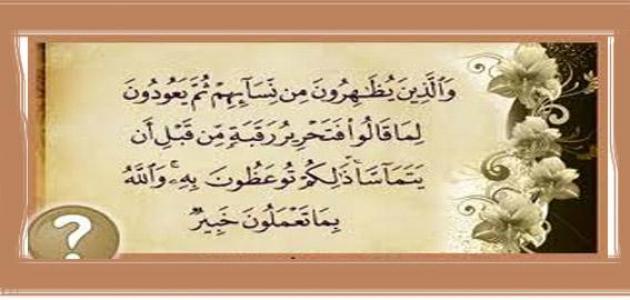 وَٱلَّذِينَ يُظَـٰهِرُونَ مِن نِّسَآئِهِمْ ثُمَّ يَعُودُونَ
لِمَا قَالُوا۟ فَتَحْرِيرُ رَقَبَةٍ مِّن قَبْلِ أَن
يَتَمَآسَّا ۚ ذَٰلِكُمْ تُوعَظُونَ بِهِۦ ۚ وَٱللَّهُ
بِمَا تَعْمَلُونَ خَبِيرٌ
?